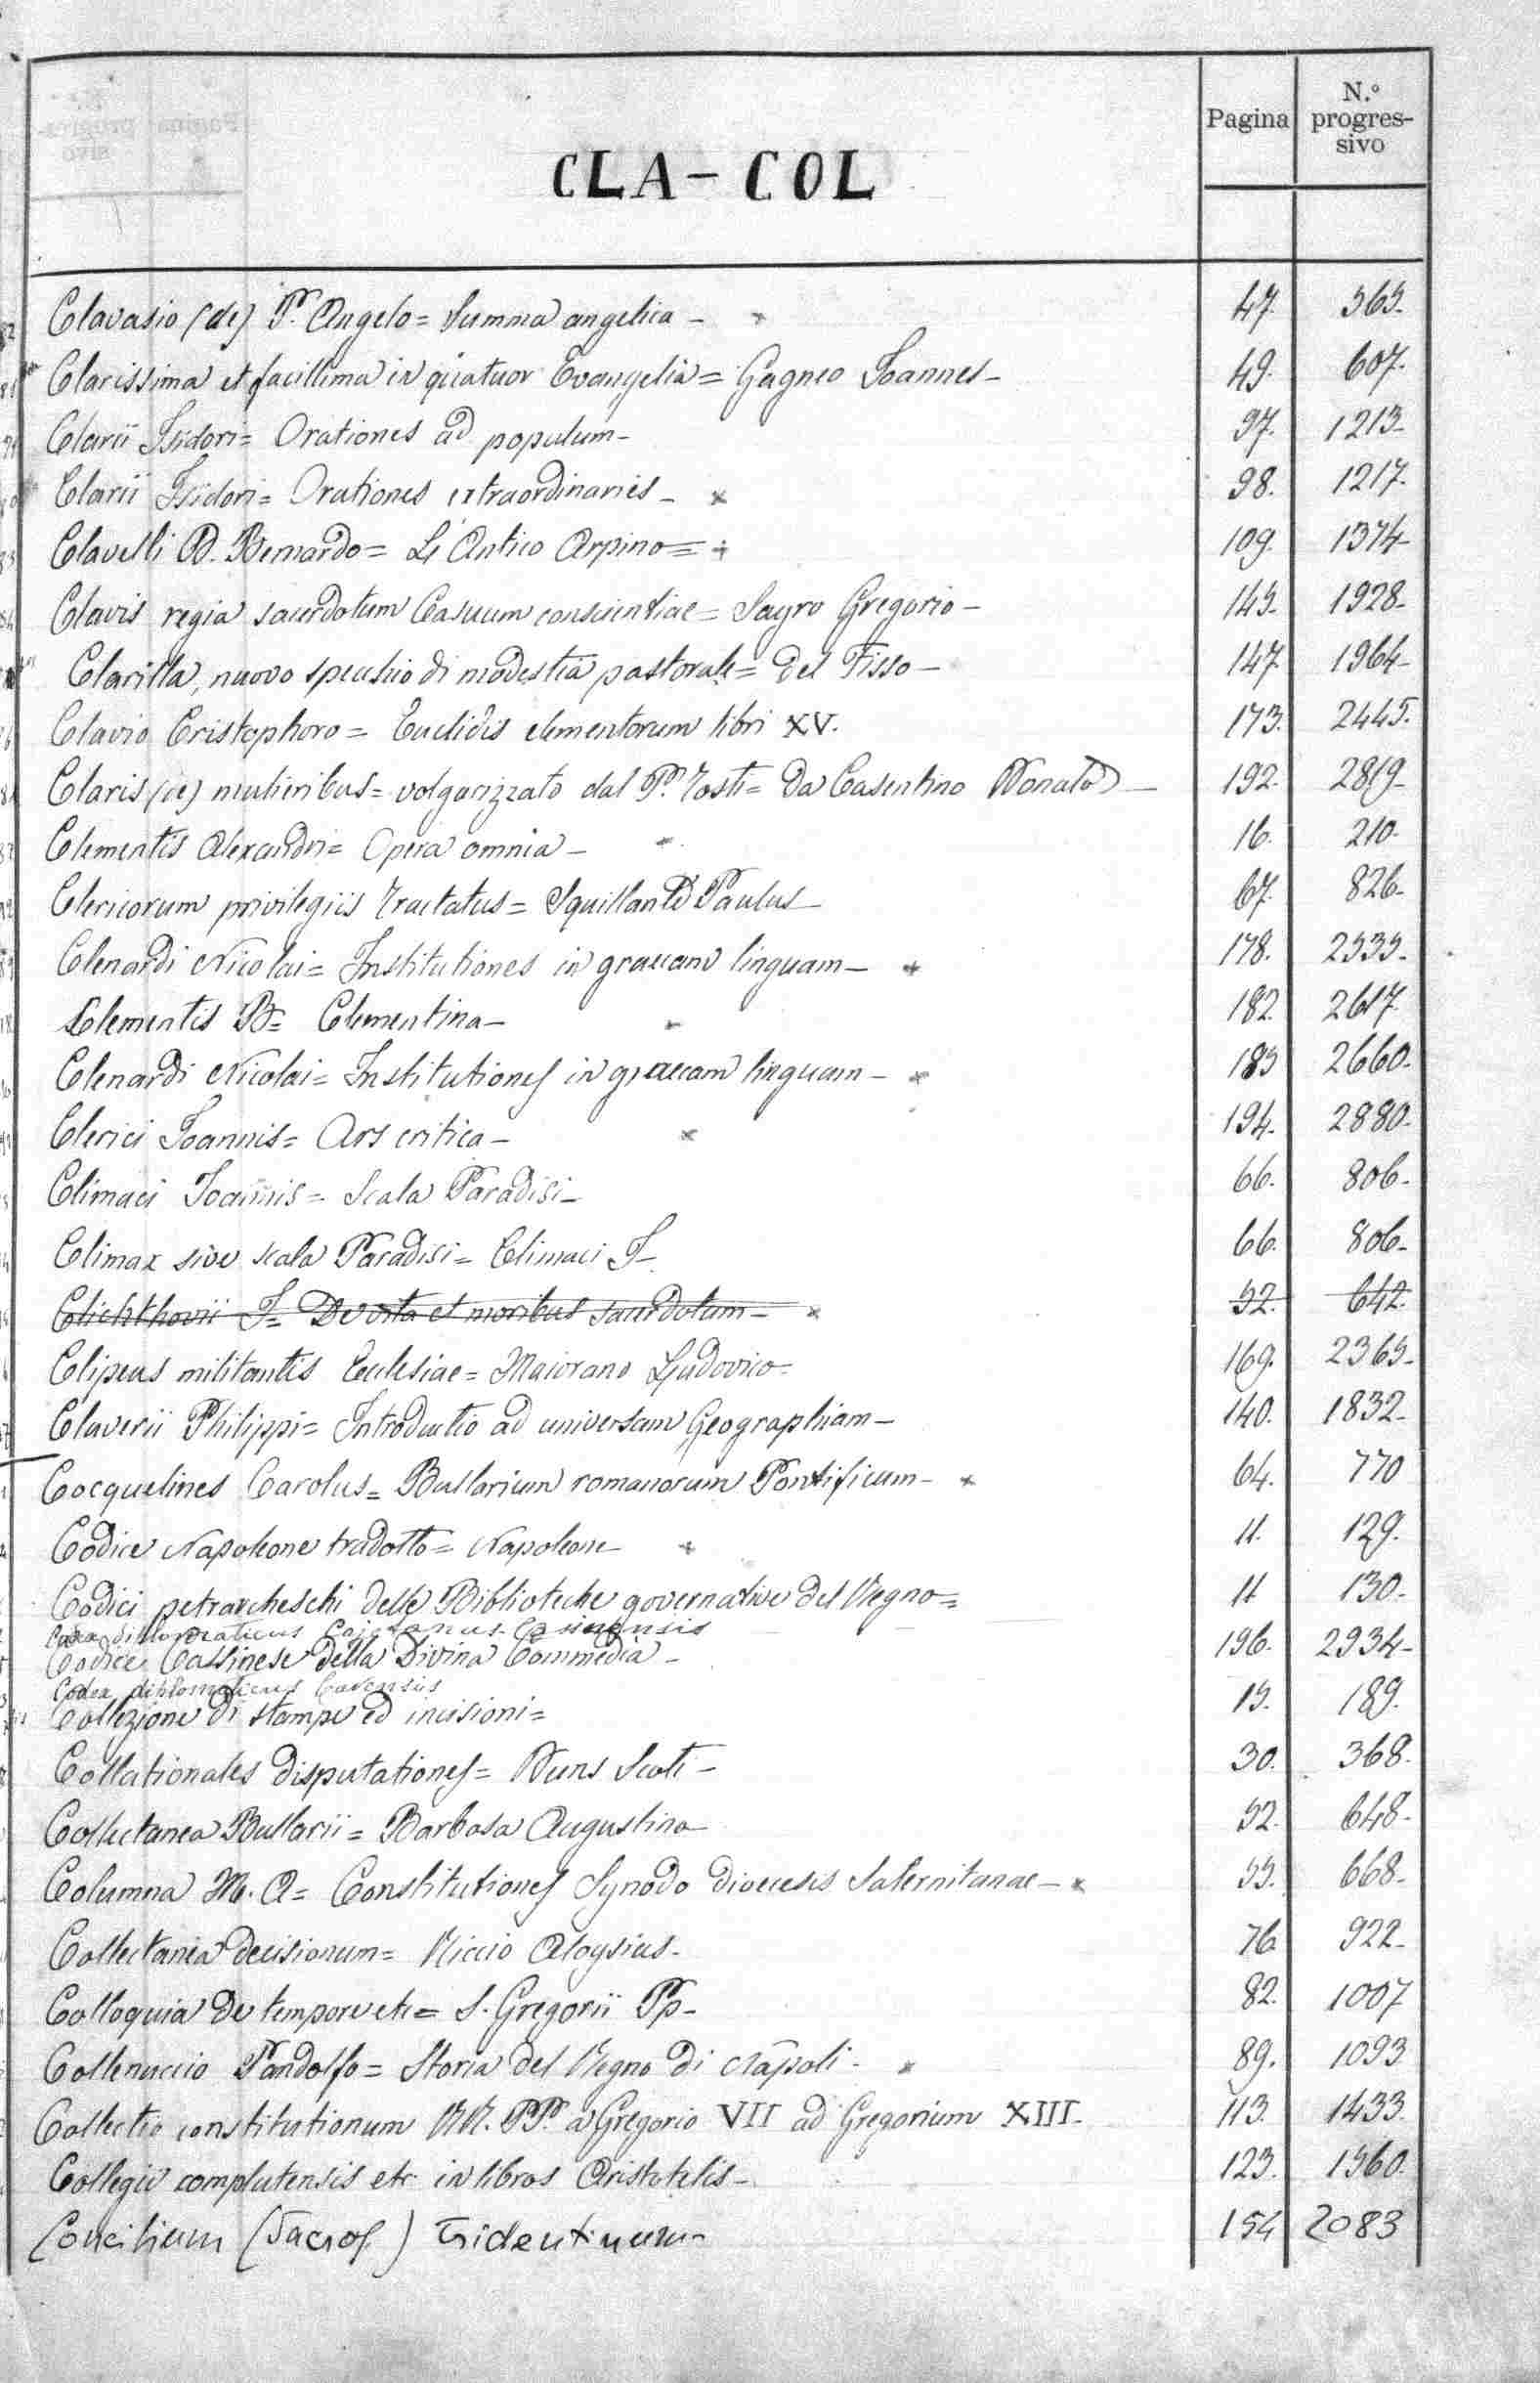 Pagina
N.º progres-
sivo
CLA - COL
Clavasio (de) P. Angelo = Summa angelica - 47. 565.
Clarissima et facillima in quatuor Evangelia = Gagneo Joannes - 49. 607.
Clarii Isidori = Orationes ad populum - 97. 1213.
Clarii Isidori = Orationes extraordinaries - × 98. 1217.
Clavelli D. Bernardo = L'Antico Arpino = + 109. 1374
Clavis regia sacerdotum Casuum conscientiae = Sayro Gregorio - 145. 1928.
Clarilla, nuovo specchio di modestia pastorale = del Tisso - 147 1964
Clavio Cristophoro = Euclidis elementorum libri XV. 173. 2445.
Claris (de) mulieribus = volgarizzato dal P. Tosti = Da Casentino Donato - 192. 2819
Clementis Alexandri = Opera omnia - 16. 210
Clericorum privilegiis tractatus = Squillante Paulus 67. 826.
Clenardi Nicolai = Institutiones in graecam linguam - × 178. 2535.
Clementis P. = Clementina - 182. 2617
Clenardi Nicolai = Institutiones in graecam linguam - × 185 2660.
Clerici Joannis = Ars critica - × 194. 2880.
Climaci Joannis = Scala Paradisi - 66. 806.
Climax sive scala Paradisi = Climaci J - 66. 806.
Clichthovii J = De vita et moribus sacerdotum - × 52. 642.
Clipeus militantis Ecclesiae = Maiorano Ludovico = 169. 2365.
Claverii Philippi = Introductio ad universam Geographiam - 140. 1832.
Cocquelines Carolus = Bullarium romanorum Pontificum - × 64. 770
Codice Napoleone tradotto = Napoleone × 11. 129.
Codici petrarcheschi delle Biblioteche governative del Regno = 11 130.
Codex diplomaticus Cajetanus. Casinensis
Codice Cassinese della Divina Commedia - 196. 2934
Codex diplomaticus Cavensis
Collezione di stampe ed incisioni = 15. 189.
Collationales disputationes = Duns Scoti - 30. 368.
Collectanea Bullarii = Barbosa Augustino 52. 648.
Columna M. A = Constitutiones Synodo diocesis Salernitanae - × 55. 668.
Collectanea decisionum = Riccio Aloysius - 76 922.
Colloquia de tempore etc = S. Gregorii Pp - 82. 1007
Collenuccio Pandolfo = Storia del Regno di Napoli - × 89. 1093
Collectio constitutionum RR. PP. a Gregorio VII ad Gregorium XIII. 113. 1433.
Collegii complutensis etc in libros Aristotelis - 123. 1560.
Concilium (Sacros) Tridentinum 154 2083